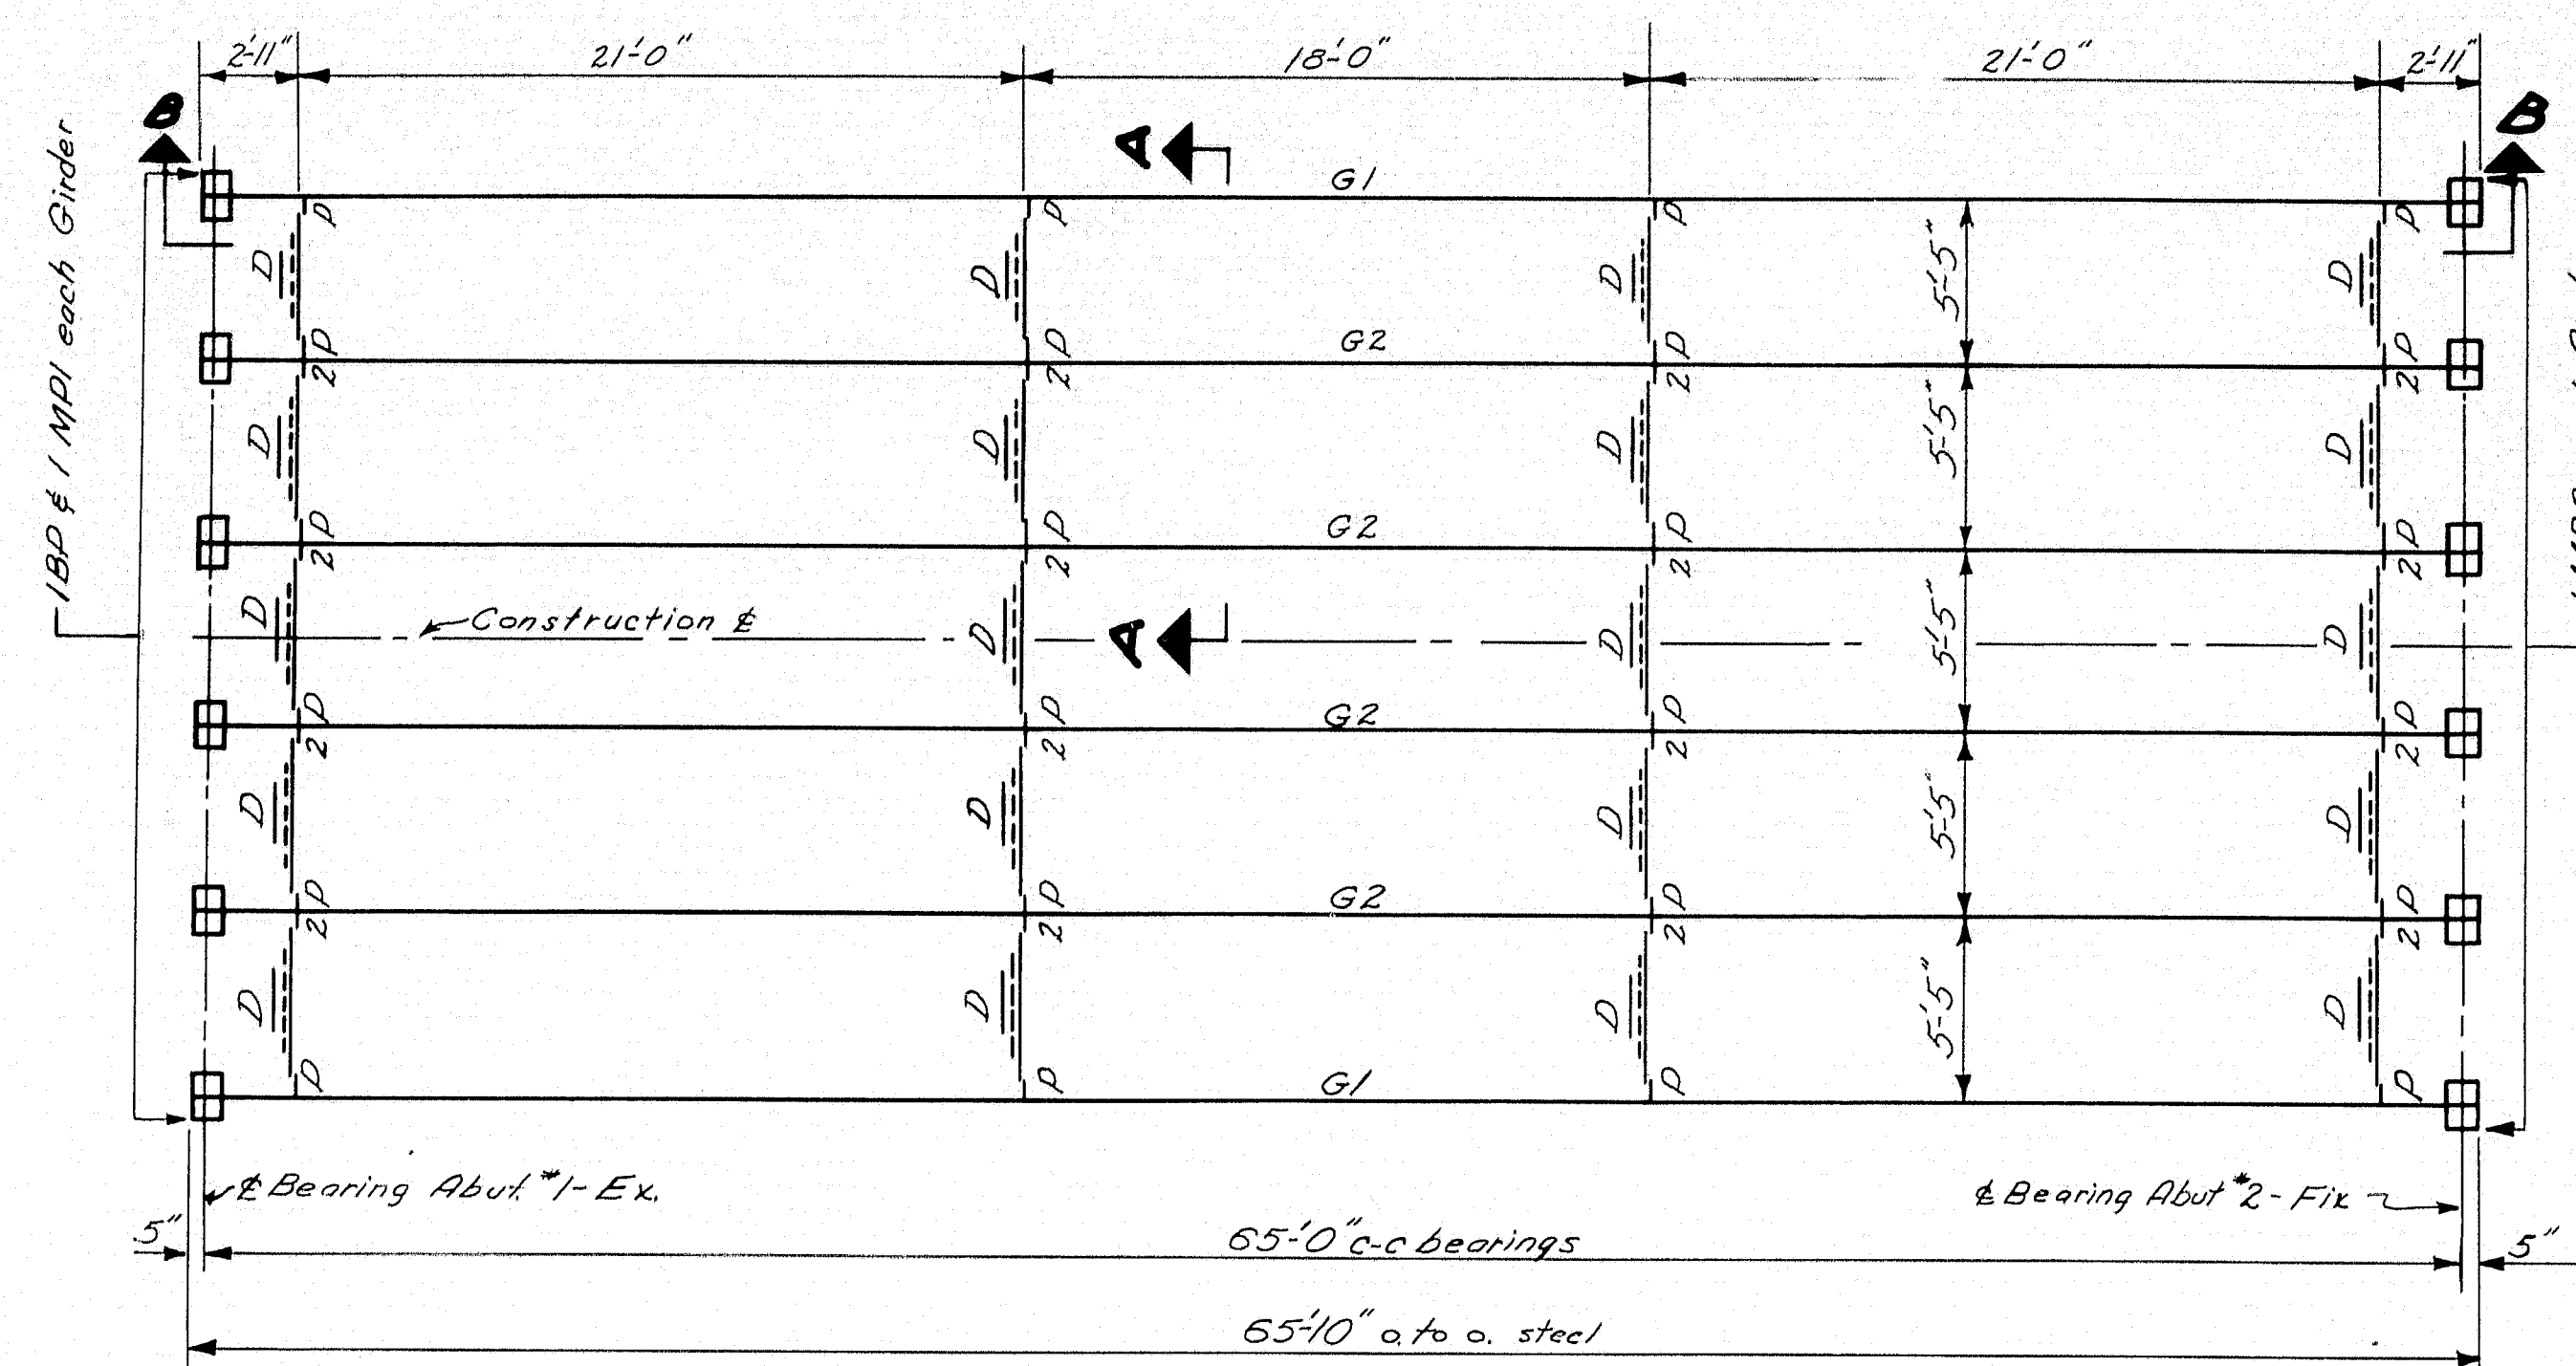 2'-11" 21'-0" 18'-0" 21'-0" 2'-11"
B A B
1BP & 1 MP1 each Girder
G1
P P P P
D D D D 5'-5"
G2
2P 2P 2P 2P
D D D D 5'-5"
G2
2P 2P 2P 2P
D D D D 5'-5"
Construction ℄ A
G2
2P 2P 2P 2P
D D D D 5'-5"
G2
2P 2P 2P 2P
D D D D 5'-5"
G1
P P P P
℄ Bearing Abut. #1-Ex. ℄ Bearing Abut #2-Fix
5" 65'-0" c-c bearings 5"
65'-10" o. to o. steel